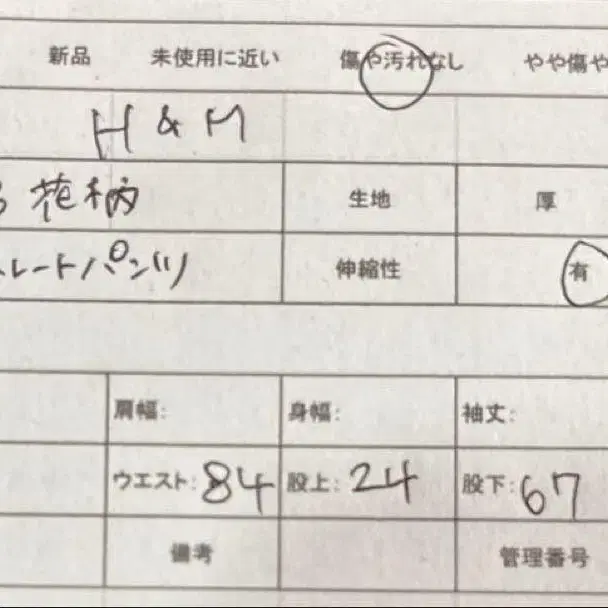 新品 未使用に近い 傷や汚れなし やや傷や
H & M
花柄 生地 厚
レートパンツ 伸縮性 有
肩幅: 身幅: 袖丈:
ウエスト: 84 股上: 24 股下: 67
備考 管理番号